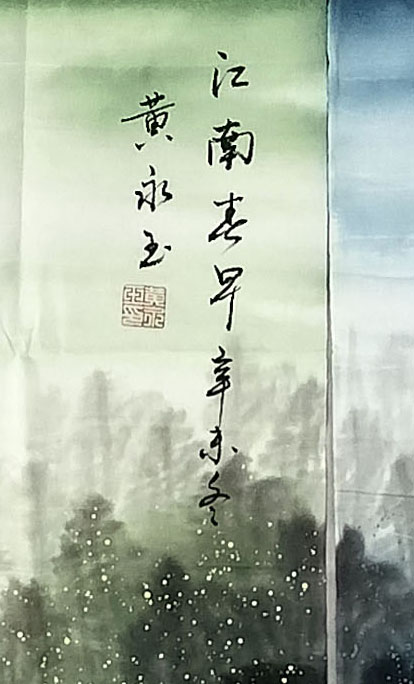 江南春早辛未冬
黄永玉